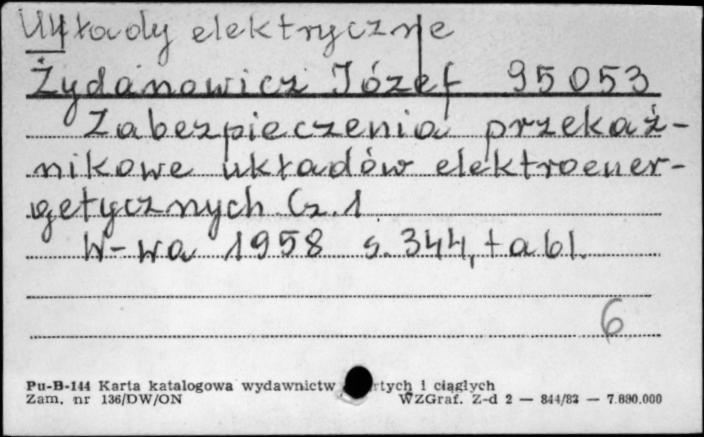 Układy elektryczne
Żydanowicz Józef 95053
Zabezpieczenia przekaź-
nikowe układów elektroener-
getycznych Cz. 1
W-wa 1958 s. 344, tabl.
6
Pu-B-144 Karta katalogowa wydawnictw rtych i ciągłych
Zam. nr 136/DW/ON WZGraf. Z-d 2 — 844/83 — 7.880.000